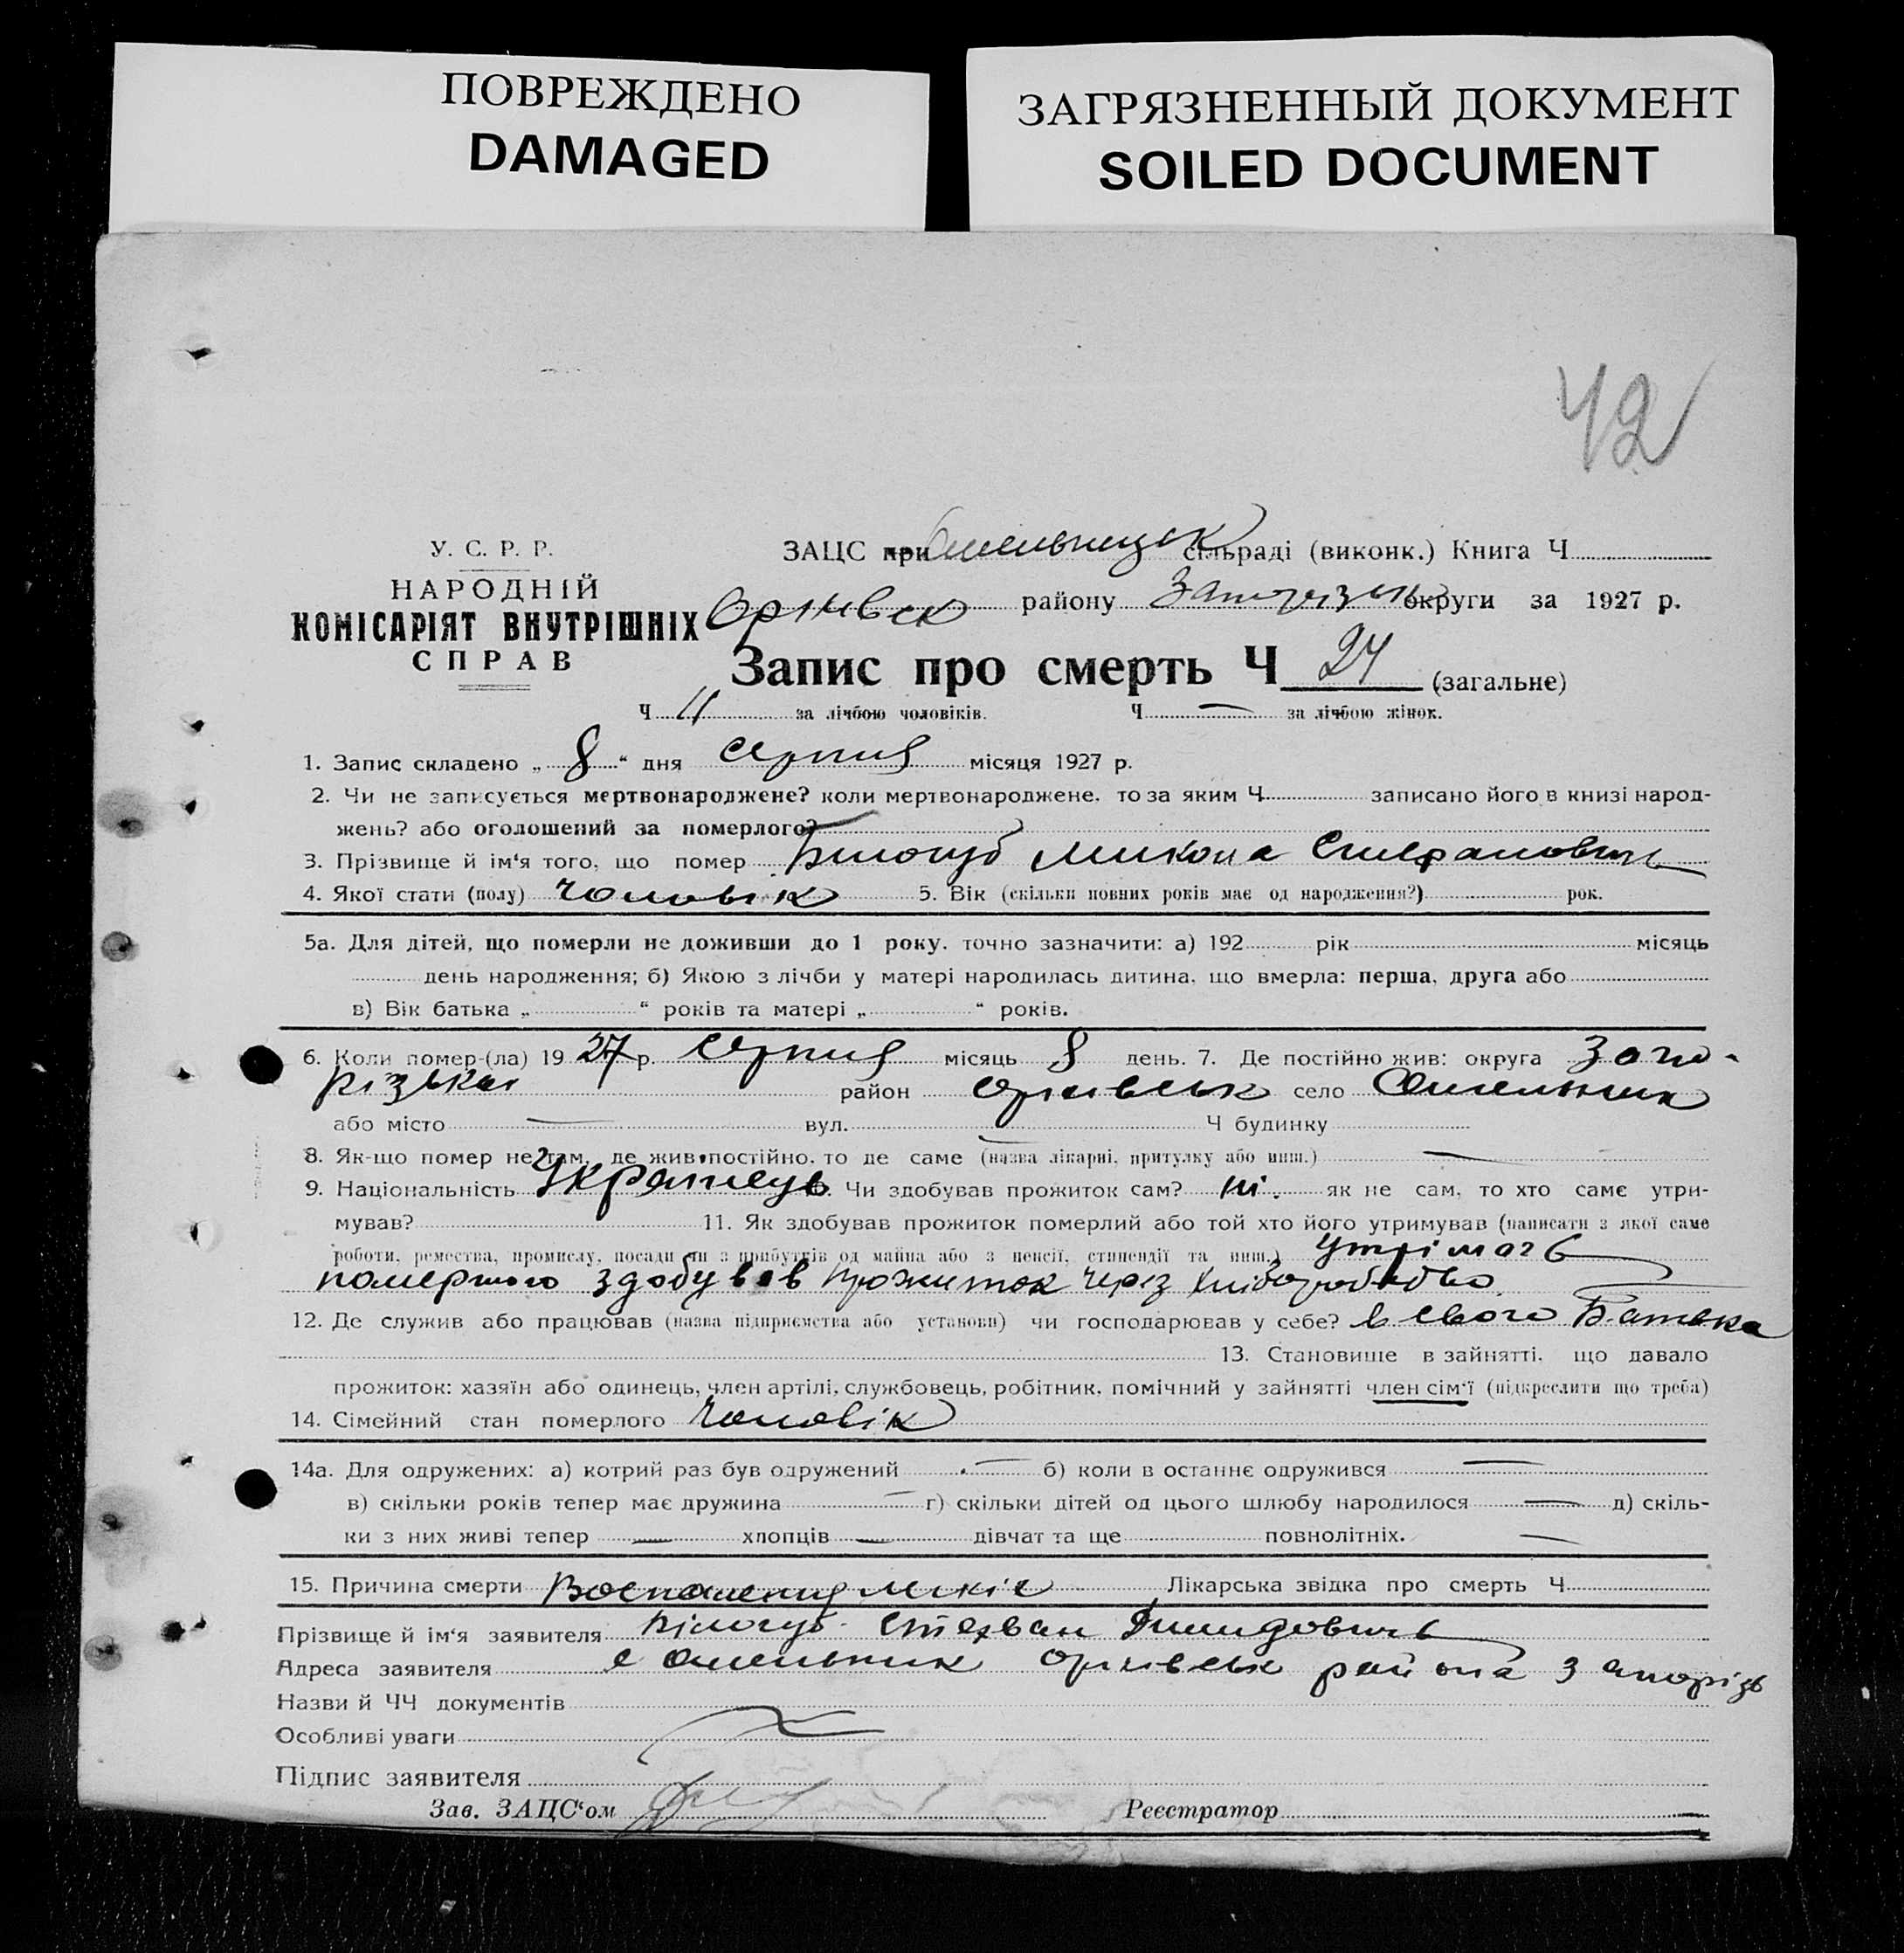 ПОВРЕЖДЕНО
DAMAGED
ЗАГРЯЗНЕННЫЙ ДОКУМЕНТ
SOILED DOCUMENT
42
У. С. Р. Р.
НАРОДНІЙ
КОМІСАРІЯТ ВНУТРІШНІХ
СПРАВ
ЗАЦС при Омельницьк сільраді (виконк.) Книга Ч
Оріхівск району Запорізьк округи за 1927 р.
Запис про смерть Ч 24 (загальне)
Ч 11 за лічбою чоловіків. Ч — за лічбою жінок.
1. Запис складено „ 8 “ дня серпня місяця 1927 р.
2. Чи не записується мертвонароджене? коли мертвонароджене, то за яким Ч записано його в книзі народ-
жень? або оголошений за померлого?
3. Прізвище й ім‘я того, що помер Білогуб Микола Стефанович
4. Якої стати (полу) чоловік 5. Вік (скільки повних років має од народження?) рок.
5а. Для дітей, що померли не доживши до 1 року, точно зазначити: а) 192 рік місяць
день народження; б) Якою з лічби у матері народилась дитина, що вмерла: перша, друга або
в) Вік батька „ “ років та матері „ “ років.
6. Коли помер-(ла) 19 27 р. серпня місяць 8 день. 7. Де постійно жив: округа Запо-
різька район Оріхівськ село Омельник
або місто — вул. — Ч будинку
8. Як-що помер не там, де жив постійно, то де саме (назва лікарні, притулку або инш.) —
9. Національність Українець Чи здобував прожиток сам? ні. як не сам, то хто саме утри-
мував? 11. Як здобував прожиток померлий або той хто його утримував (написати з якої саме
роботи, ремества, промислу, посади чи з прибутків од майна або з пенсії, стипендії та инш.) утрімачь
помершого здобував прожиток через хліборобство
12. Де служив або працював (назва підприємства або установи) чи господарював у себе? в свого Батька
13. Становище в зайнятті, що давало
прожиток: хазяїн або одинець, член артілі, службовець, робітник, помічний у зайнятті член сім‘ї (підкреслити що треба)
14. Сімейний стан померлого Чоловік
14а. Для одружених: а) котрий раз був одружений — б) коли в останнє одружився —
в) скільки років тепер має дружина — г) скільки дітей од цього шлюбу народилося — д) скіль-
ки з них живі тепер — хлопців — дівчат та ще повнолітніх. —
15. Причина смерти Лікарська звідка про смерть Ч
Прізвище й ім‘я заявителя Білогуб Стехван
Адреса заявителя с Омельник Оріхівськ района Запорізь
Назви й ЧЧ документів
Особливі уваги
Підпис заявителя
Зав. ЗАЦС‘ом Реєстратор